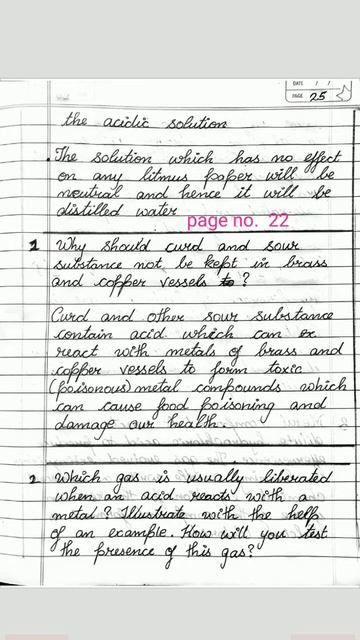 DATE / /
PAGE 25
the acidic solution
• The solution which has no effect
on any litmus paper will be
neutral and hence it will be
distilled water
page no. 22
1 Why should curd and sour
substance not be kept in brass
and copper vessels to?
Curd and other sour substance
contain acid which can ex
react with metals of brass and
copper vessels to form toxic
(poisonous) metal compounds which
can cause food poisoning and
damage our health.
2 Which gas is usually liberated
when an acid reacts with a
metal? Illustrate with the help
of an example. How will you test
the presence of this gas?